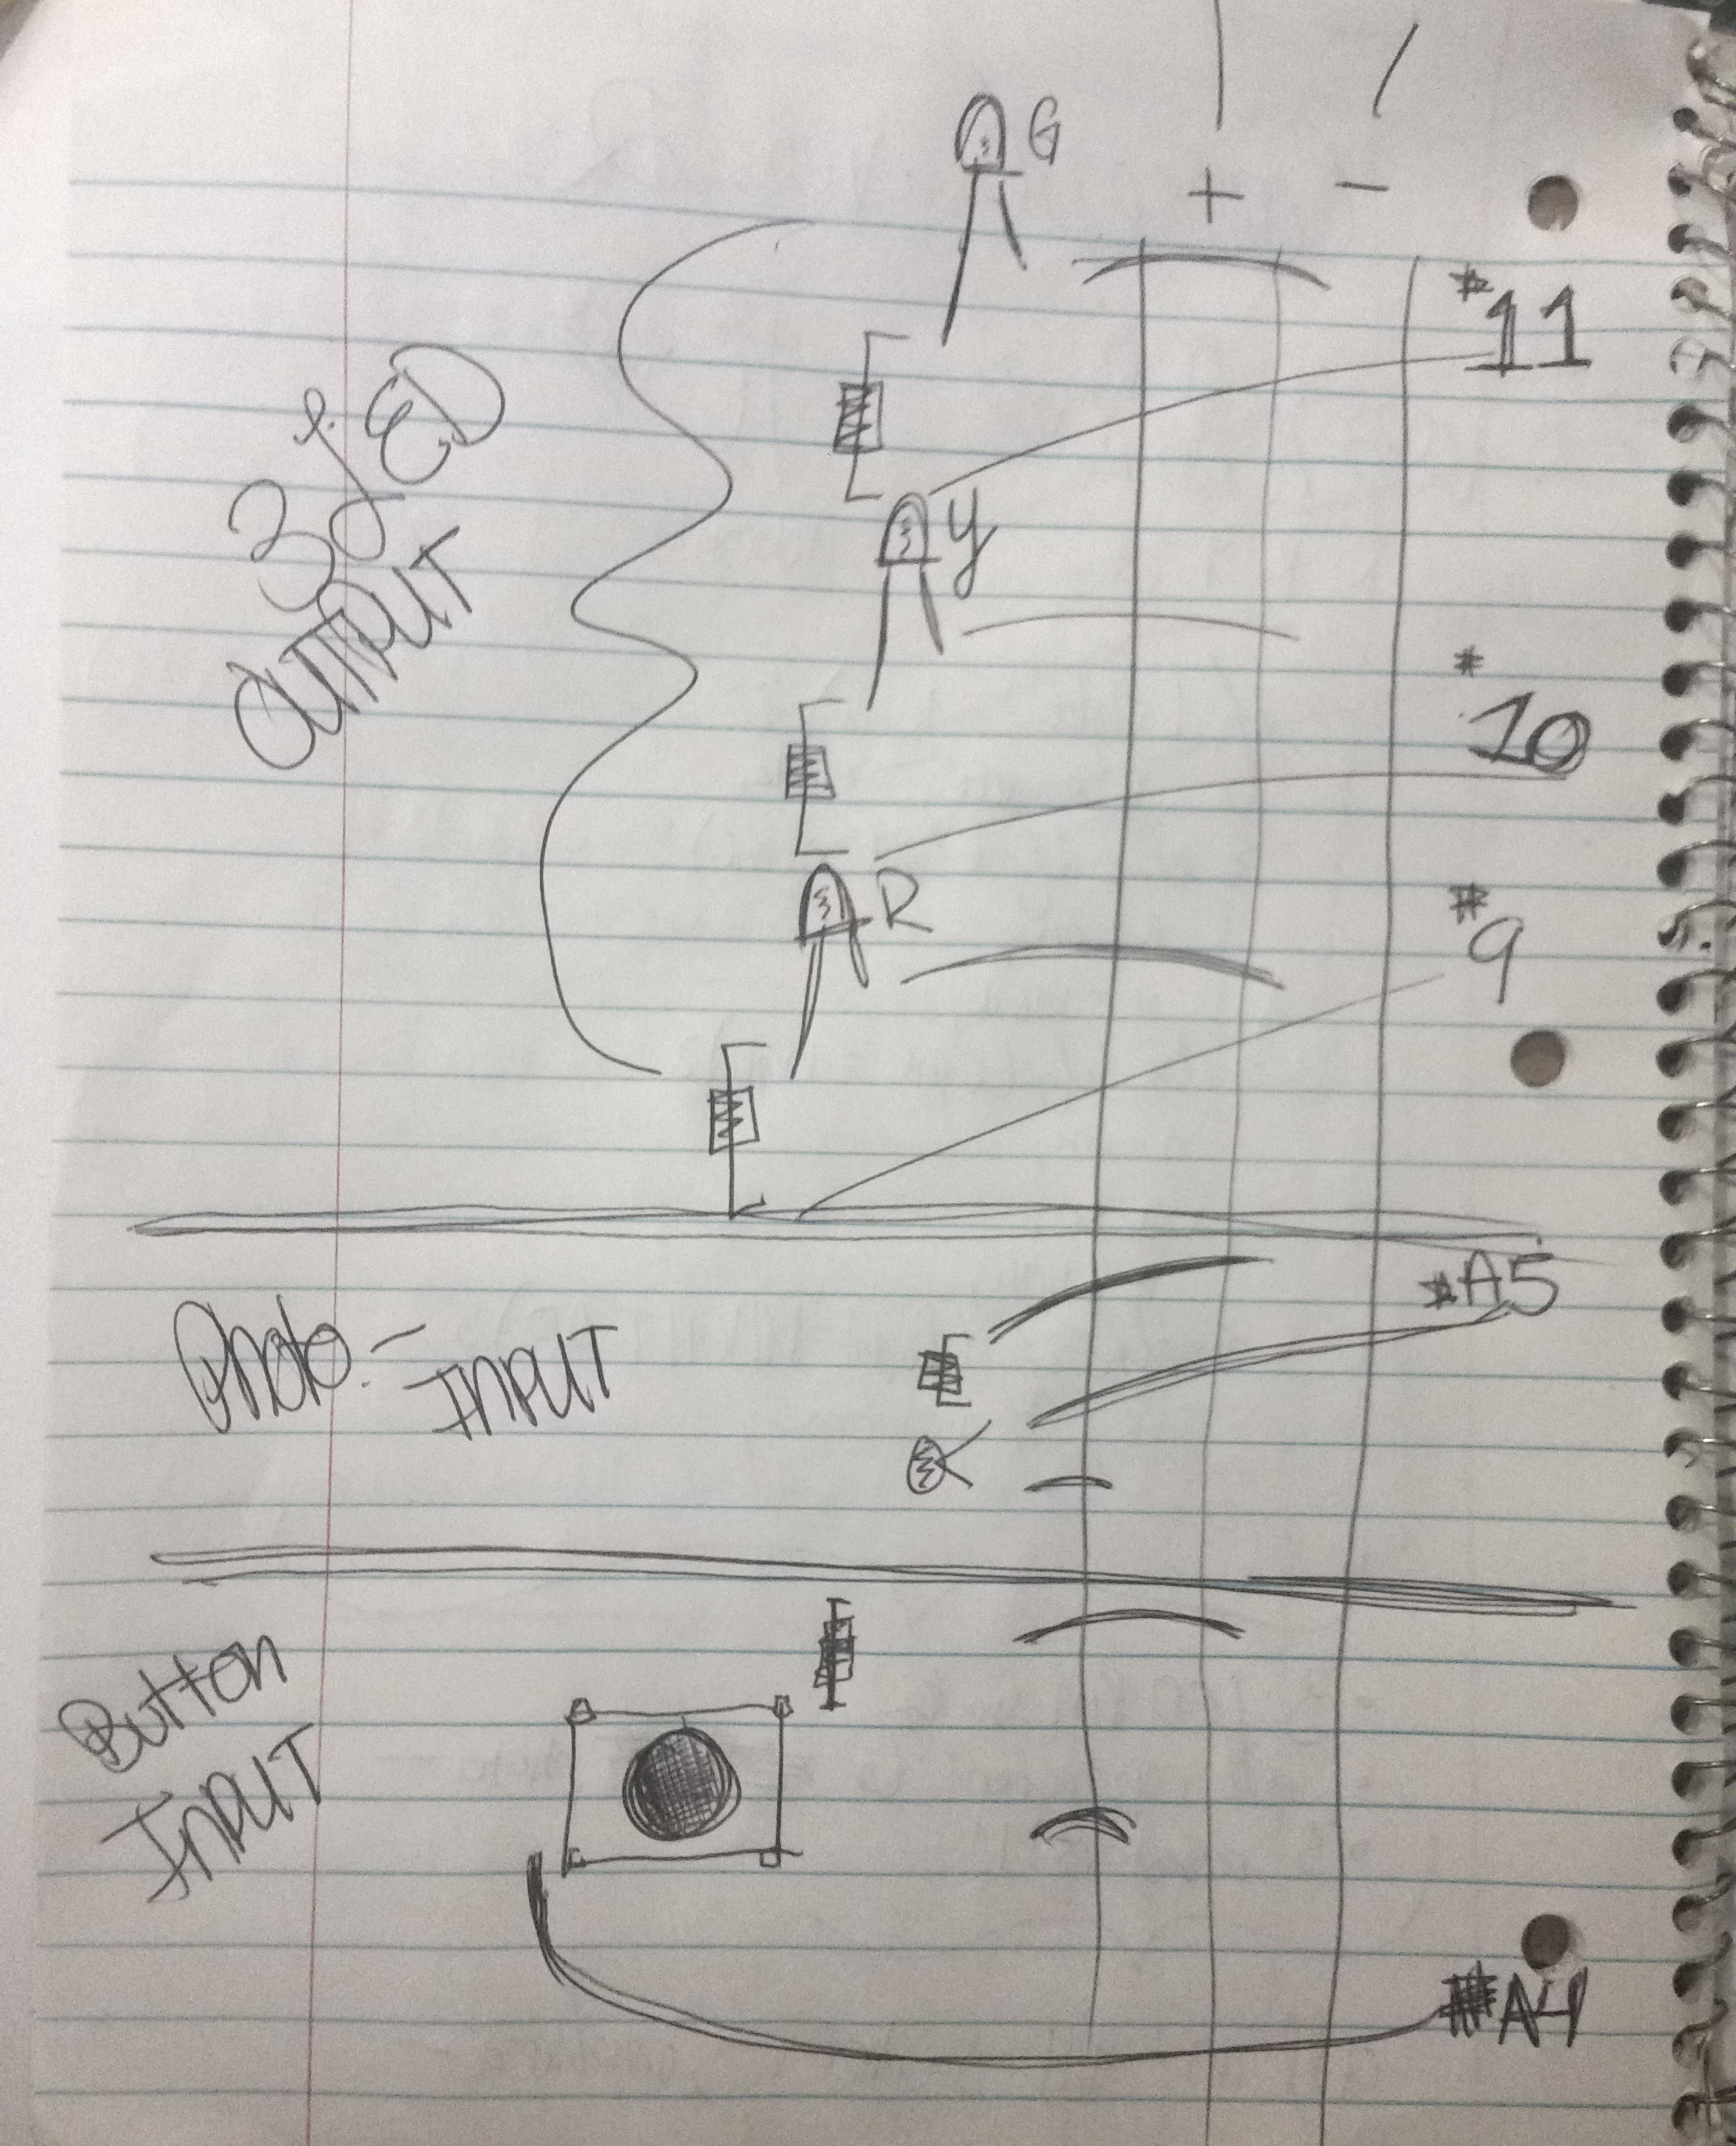 G
+ -
#11
3 LED
OUTPUT
Y
#10
R
#9
#A5
Photo - INPUT
Button
INPUT
#A4